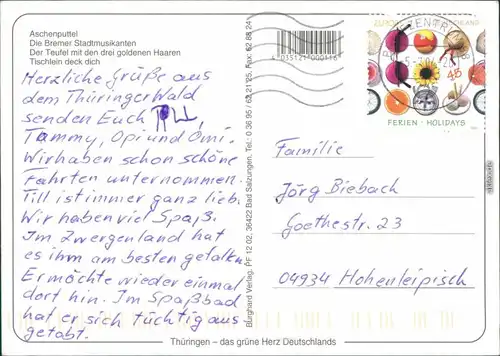 Aschenputtel
Die Bremer Stadtmusikanten
Der Teufel mit den drei goldenen Haaren
Tischlein deck dich
Herzliche Grüße aus
dem Thüringer Wald
senden Euch
Tommy, Opi und Omi.
Wir haben schon schöne
Fahrten unternommen.
Till ist immer ganz lieb.
Wir haben viel Spaß.
Im Zwergenland hat
es ihm am besten gefalln.
Er möchte wieder einmal
dort hin. Im Spaßbad
hat er sich tüchtig aus-
getobt.
Burghard Verlag, PF 12 02, 36422 Bad Salzungen, Tel.: 0 36 95 / 62 21 25, Fax: 62 88 24
4 035121 000116
DEUTSCHLAND
45
FERIEN · HOLIDAYS
Familie
Jörg Biebach
Goethestr. 23
04934 Hohenleipisch
Thüringen – das grüne Herz Deutschlands